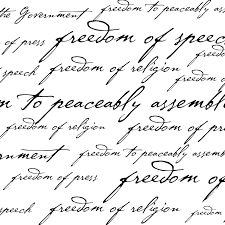 the Government freedom to peaceably
of press freedom of speec
speech freedom of religion
m to peaceably assembl
m of religion freedom of
rnment freedom to peaceably a
freedom of press freedom o
speech freedom of religion